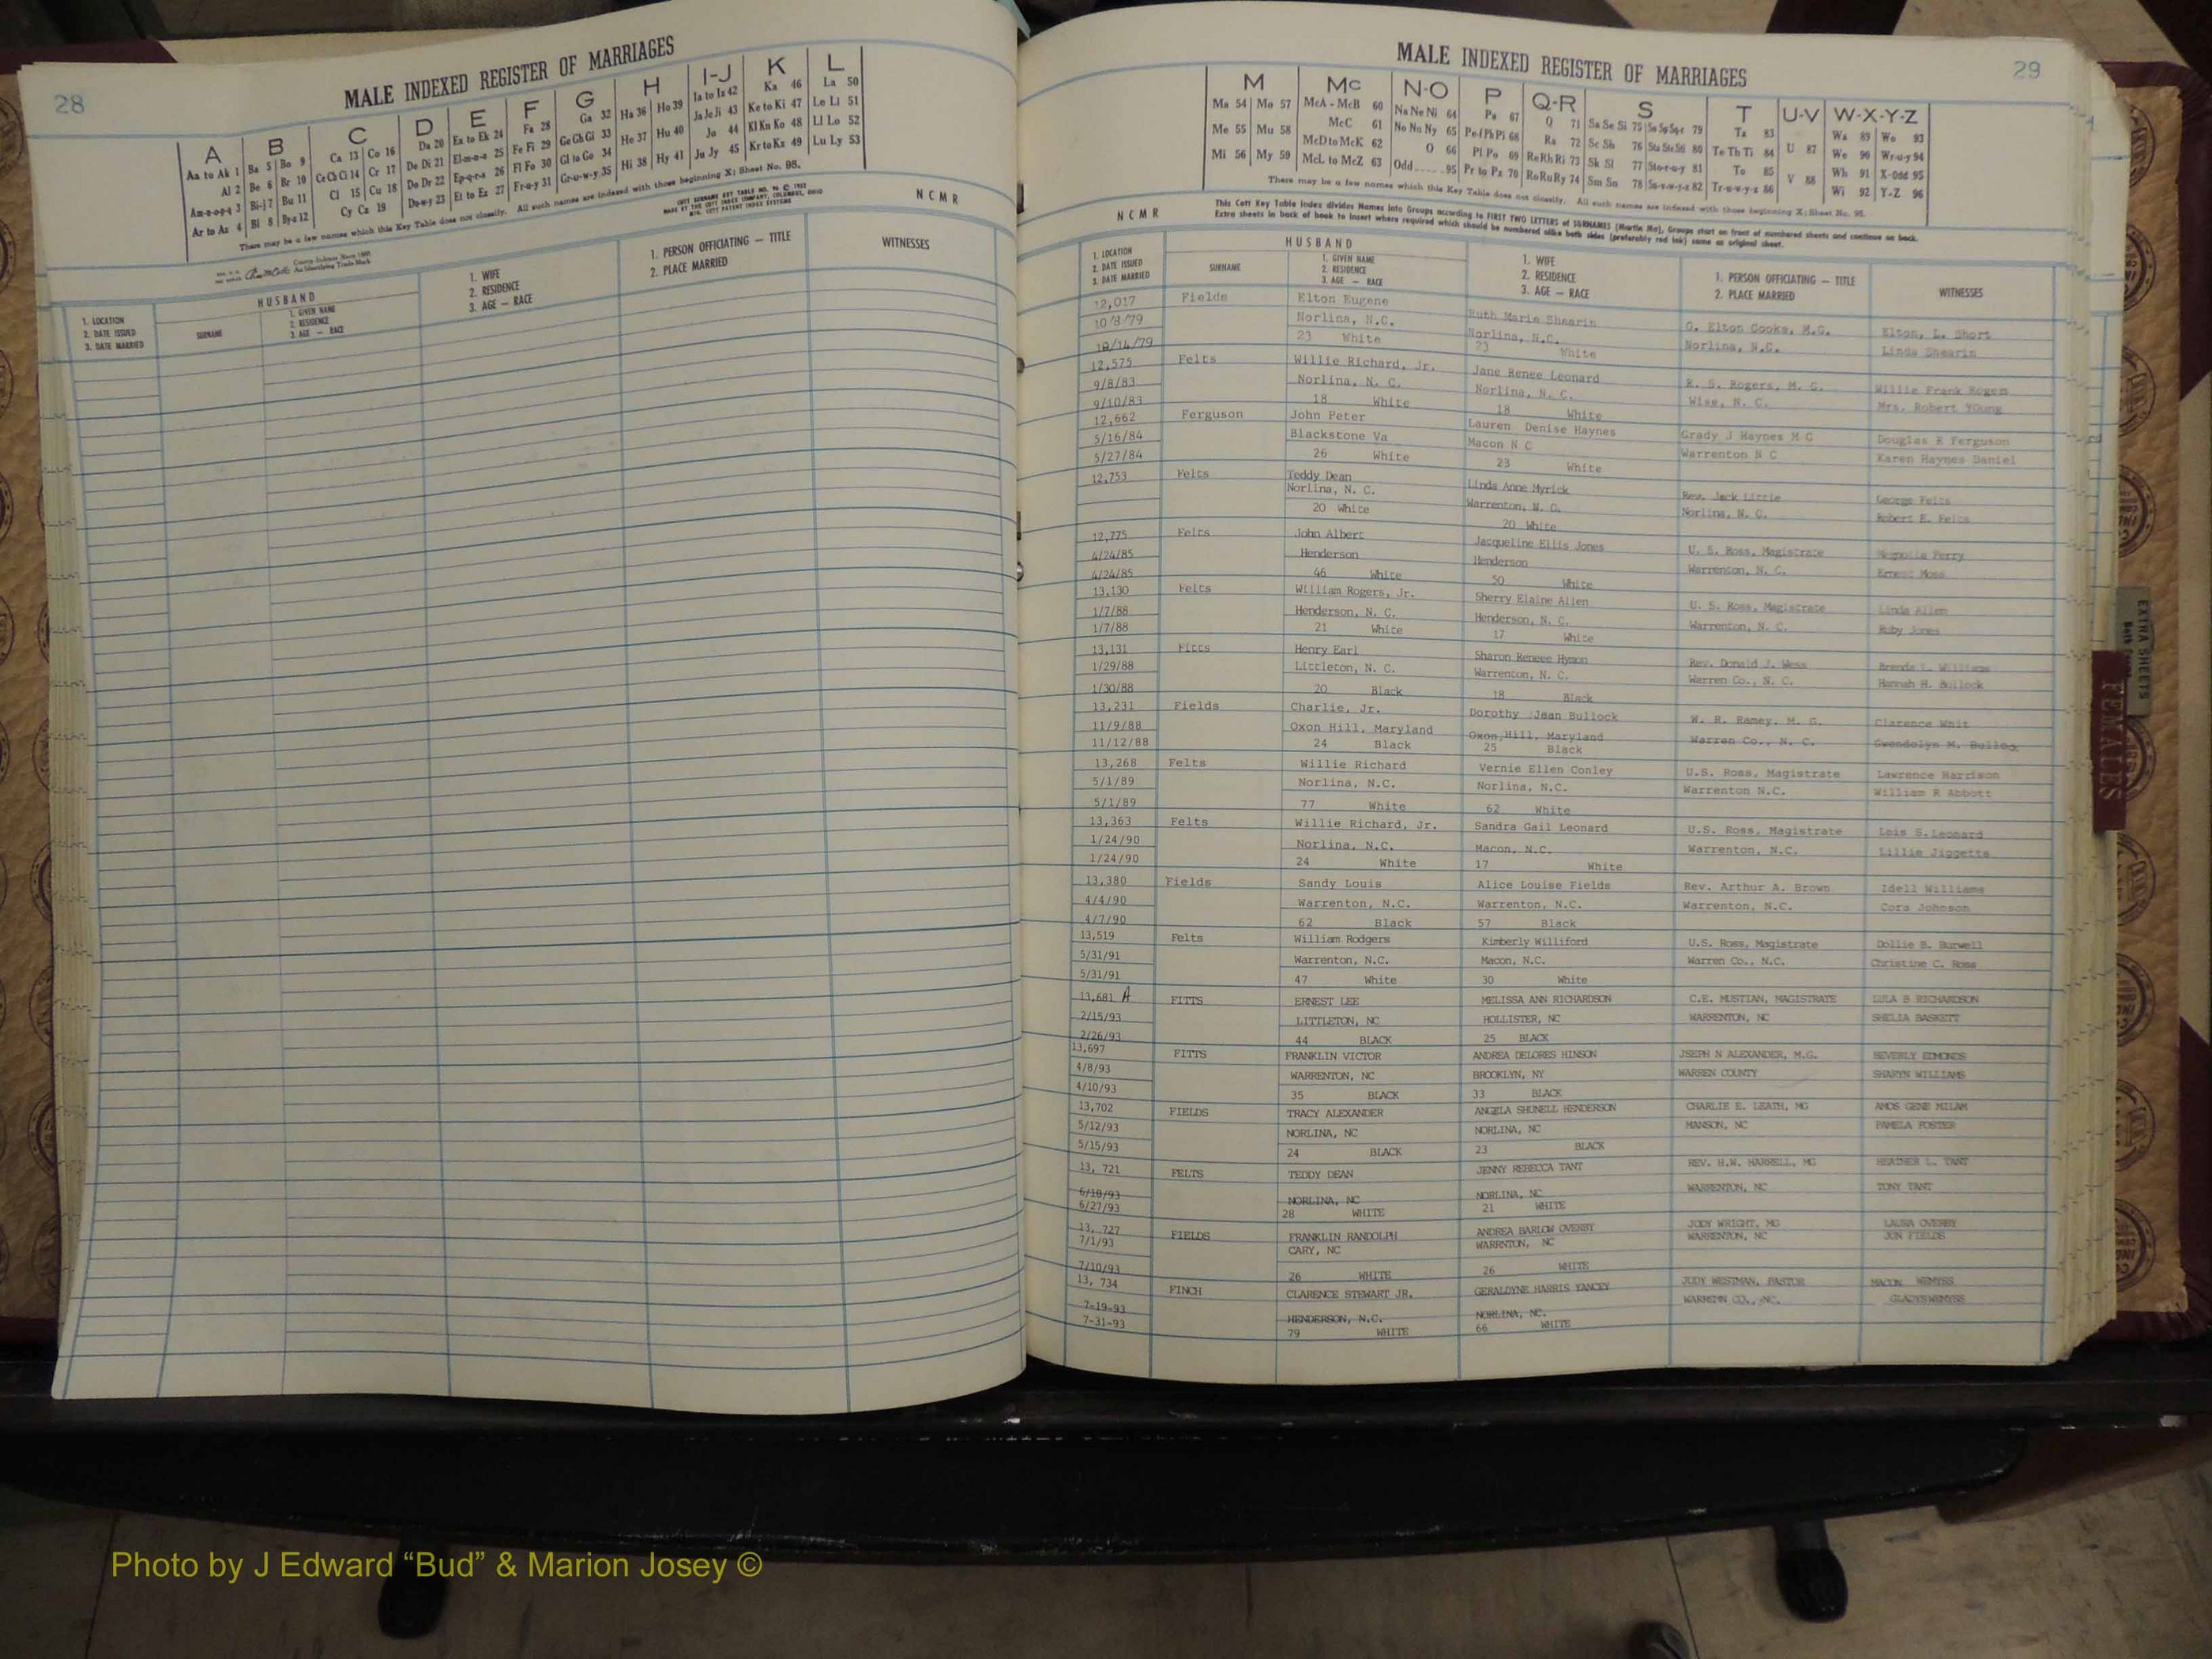 28
MALE INDEXED REGISTER OF MARRIAGES
A B C D E F G H I-J K L
Aa to Ak 1 Ba 5 Bo 9 Ca 13 Co 16 Da 20 Ea to Ek 24 Fa 28 Ga 32 Ha 36 Ho 39 Ia to Iz 42 Ka 46 La 50
Al 2 Be 6 Br 10 Ce Ch Ci 14 Cr 17 De Di 21 El-m-n-o 25 Fe Fi 29 Ge Gh Gi 33 He 37 Hu 40 Ja Je Ji 43 Ke to Ki 47 Le Li 51
Am-n-o-p-q 3 Bi-j 7 Bu 11 Cl 15 Cu 18 Do Dr 22 Ep-q-r-s 26 Fl Fo 30 Gl to Go 34 Hi 38 Hy 41 Jo 44 Kl Kn Ko 48 Ll Lo 52
Ar to Az 4 Bl 8 By-z 12 Cy Cz 19 Du-w-y 23 Et to Ez 27 Fr-u-y 31 Gr-u-w-y 35 Ju Jy 45 Kr to Kz 49 Lu Ly 53
There may be a few names which this Key Table does not classify. All such names are indexed with those beginning X; Sheet No. 95.
N C M R
HUSBAND
1. LOCATION
2. DATE ISSUED
3. DATE MARRIED
SURNAME
1. GIVEN NAME
2. RESIDENCE
3. AGE — RACE
1. WIFE
2. RESIDENCE
3. AGE — RACE
1. PERSON OFFICIATING — TITLE
2. PLACE MARRIED
WITNESSES
MALE INDEXED REGISTER OF MARRIAGES
29
M Mc N-O P Q-R S T U-V W-X-Y-Z
Ma 54 Mo 57 McA - McB 60 Na Ne Ni 64 Pa 67 Q 71 Sa Se Si 75 So Sp Sq-r 79 Ta 83 U 87 Wa 89 Wo 93
Me 55 Mu 58 McC 61 No Nu Ny 65 Pe-f Ph Pi 68 Ra 72 Sc Sh 76 Sta Ste Sti 80 Te Th Ti 84 We 90 Wr-u-y 94
Mi 56 My 59 McD to McK 62 O 66 Pl Po 69 Re Rh Ri 73 Sk Sl 77 Sto-r-u-y 81 To 85 V 88 Wh 91 X-odd 95
McL to McZ 63 Odd 95 Pr to Pz 70 Ro Ru Ry 74 Sm Sn 78 Su-v-w-y-z 82 Tr-u-w-y-z 86 Wi 92 Y-Z 96
There may be a few names which this Key Table does not classify. All such names are indexed with those beginning X; Sheet No. 95.
This Cott Key Table Index divides Names into Groups according to FIRST TWO LETTERS of SURNAMES (Martin Ma), Groups start on front of numbered sheets and continue on back.
Extra sheets in back of book to insert where required which should be numbered alike both sides (preferably red ink) same as original sheet.
N C M R
HUSBAND
1. LOCATION
2. DATE ISSUED
3. DATE MARRIED
SURNAME
1. GIVEN NAME
2. RESIDENCE
3. AGE — RACE
1. WIFE
2. RESIDENCE
3. AGE — RACE
1. PERSON OFFICIATING — TITLE
2. PLACE MARRIED
WITNESSES
12,017 Fields Elton Eugene Ruth Marie Shearin G. Elton Cooke, M.G. Elton, L. Short
10/8/79 Norlina, N.C. Norlina, N.C. Norlina, N.C. Linda Shearin
10/14/79 23 White 23 White
12,575 Felts Willie Richard, Jr. Jane Renee Leonard R. S. Rogers, M. G. Willie Frank Rogers
9/8/83 Norlina, N. C. Norlina, N. C. Wise, N. C. Mrs. Robert YOung
9/10/83 18 White 18 White
12,662 Ferguson John Peter Lauren Denise Haynes Grady J Haynes M G Douglas E Ferguson
5/16/84 Blackstone Va Macon N C Warrenton N C Karen Haynes Daniel
5/27/84 26 White 23 White
12,753 Felts Teddy Dean Linda Anne Myrick Rev. Jack Little George Felts
Norlina, N. C. Warrenton, N. C. Norlina, N. C. Robert E. Felts
20 White 20 White
12,775 Felts John Albert Jacqueline Ellis Jones U. S. Ross, Magistrate Magnolia Perry
4/24/85 Henderson Henderson Warrenton, N. C. Ernest Moss
4/24/85 46 White 50 White
13,130 Felts William Rogers, Jr. Sherry Elaine Allen U. S. Ross, Magistrate Linda Allen
1/7/88 Henderson, N. C. Henderson, N. C. Warrenton, N. C. Ruby Jones
1/7/88 21 White 17 White
13,131 Fitts Henry Earl Sharon Reneee Hymon Rev. Donald J. Wess Brenda L. Williams
1/29/88 Littleton, N. C. Warrenton, N. C. Warren Co., N. C. Hannah H. Bullock
1/30/88 20 Black 18 Black
13,231 Fields Charlie, Jr. Dorothy Jean Bullock W. R. Ramey, M. G. Clarence Whit
11/9/88 Oxon Hill, Maryland Oxon Hill, Maryland Warren Co., N. C. Gwendolyn M. Bullock
11/12/88 24 Black 25 Black
13,268 Felts Willie Richard Vernie Ellen Conley U.S. Ross, Magistrate Lawrence Harrison
5/1/89 Norlina, N.C. Norlina, N.C. Warrenton N.C. William R Abbott
5/1/89 77 White 62 White
13,363 Felts Willie Richard, Jr. Sandra Gail Leonard U.S. Ross, Magistrate Lois S. Leonard
1/24/90 Norlina, N.C. Macon, N.C. Warrenton, N.C. Lillie Jiggetts
1/24/90 24 White 17 White
13,380 Fields Sandy Louis Alice Louise Fields Rev. Arthur A. Brown Idell Williams
4/4/90 Warrenton, N.C. Warrenton, N.C. Warrenton, N.C. Cora Johnson
4/7/90 62 Black 57 Black
13,519 Felts William Rodgers Kimberly Williford U.S. Ross, Magistrate Dollie B. Burwell
5/31/91 Warrenton, N.C. Macon, N.C. Warren Co., N.C. Christine C. Ross
5/31/91 47 White 30 White
13,681 A FITTS ERNEST LEE MELISSA ANN RICHARDSON C.E. MUSTIAN, MAGISTRATE LULA B RICHARDSON
2/15/93 LITTLETON, NC HOLLISTER, NC WARRENTON, NC SHELIA BASKETT
2/26/93 44 BLACK 25 BLACK
13,697 FITTS FRANKLIN VICTOR ANDREA DELORES HINSON JSEPH N ALEXANDER, M.G. BEVERLY EDMONDS
4/8/93 WARRENTON, NC BROOKLYN, NY WARREN COUNTY SHARYN WILLIAMS
4/10/93 35 BLACK 33 BLACK
13,702 FIELDS TRACY ALEXANDER ANGELA SHUNELL HENDERSON CHARLIE E. LEATH, MG AMOS GENE MILAM
5/12/93 NORLINA, NC NORLINA, NC MANSON, NC PAMELA FOSTER
5/15/93 24 BLACK 23 BLACK
13, 721 FELTS TEDDY DEAN JENNY REBECCA TANT REV. H.W. HARRELL, MG HEATHER L. TANT
6/18/93 NORLINA, NC NORLINA, NC WARRENTON, NC TONY TANT
6/27/93 28 WHITE 21 WHITE
13, 727 FIELDS FRANKLIN RANDOLPH ANDREA BARLOW OVERBY JODY WRIGHT, MG LAURA OVERBY
7/1/93 CARY, NC WARRNTON, NC WARRENTON, NC JON FIELDS
7/10/93 26 WHITE 26 WHITE
13, 734 FINCH CLARENCE STEWART JR. GERALDYNE HARRIS YANCEY JUDY WESTMAN, PASTOR MACON WEMYSS
7-19-93 HENDERSON, N.C. NORLINA, NC. WARREMN CO., NC. GLADYS WEMYSS
7-31-93 79 WHITE 66 WHITE
EXTRA SHEETS
FEMALES
Photo by J Edward “Bud” & Marion Josey ©